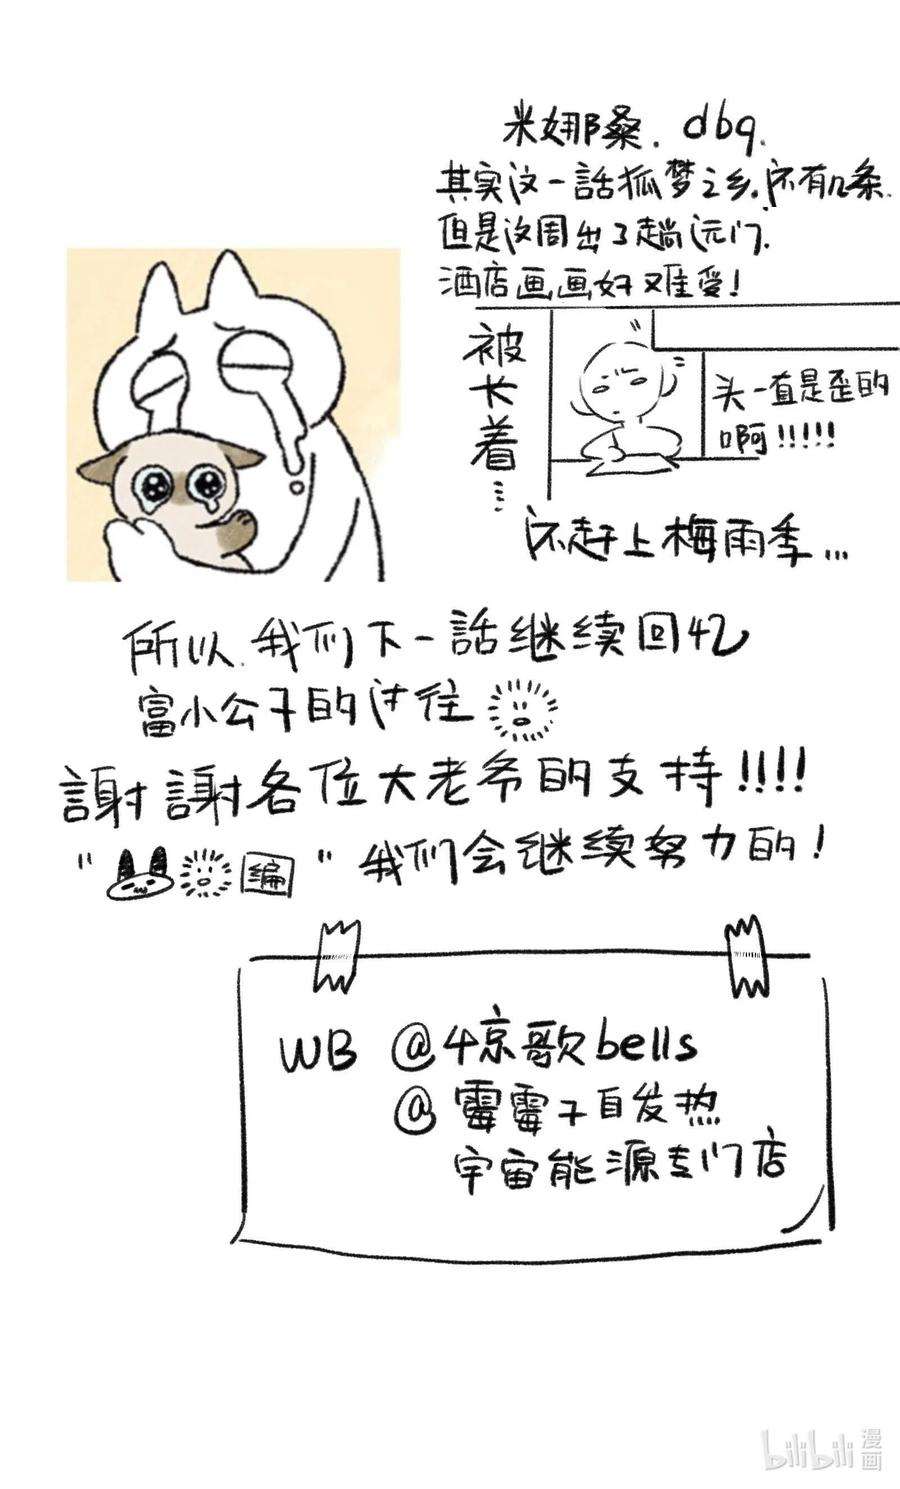 米娜那桑. dbq.
其实这一話狐梦之乡,还有几条.
但是这周出了趟远门,
酒店画画好难受!
被长着…
头一直是歪的
啊!!!!!
还赶上梅雨季…
所以.我们下一話继续回忆
富小公子的过往
謝謝各位大老爷的支持!!!!
" 编 " 我们会继续努力的!
WB @4京歌bells
@霉霉子自发热
宇宙能源专门店
bilibili 漫画